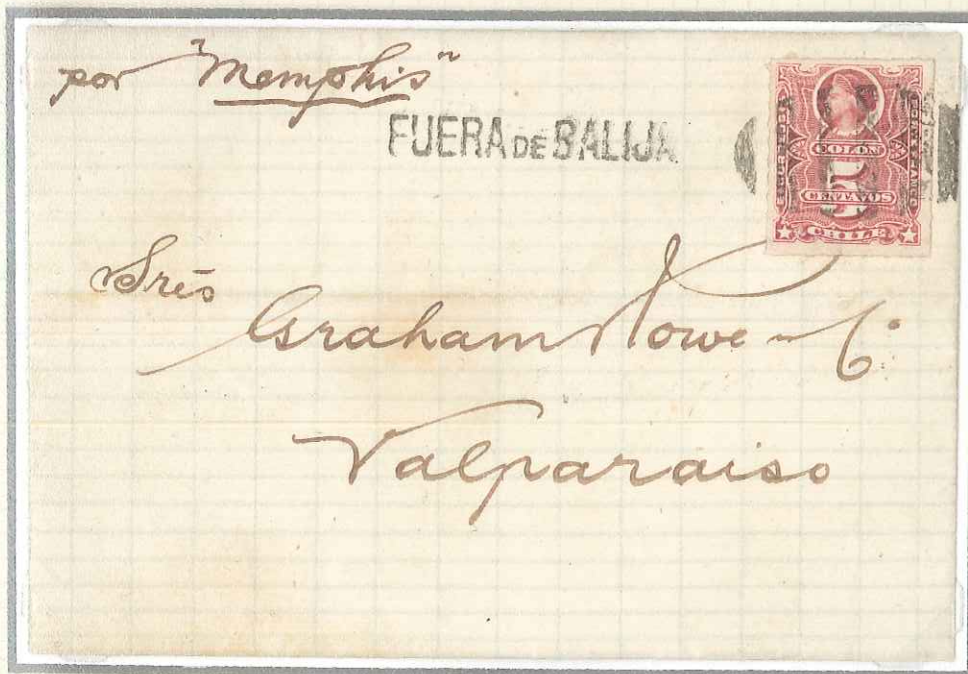 por "Memphis"
FUERA DE BALIJA
COLON
CENTAVOS
CHILE
Srēs
Graham Rowe & Cº
Valparaiso